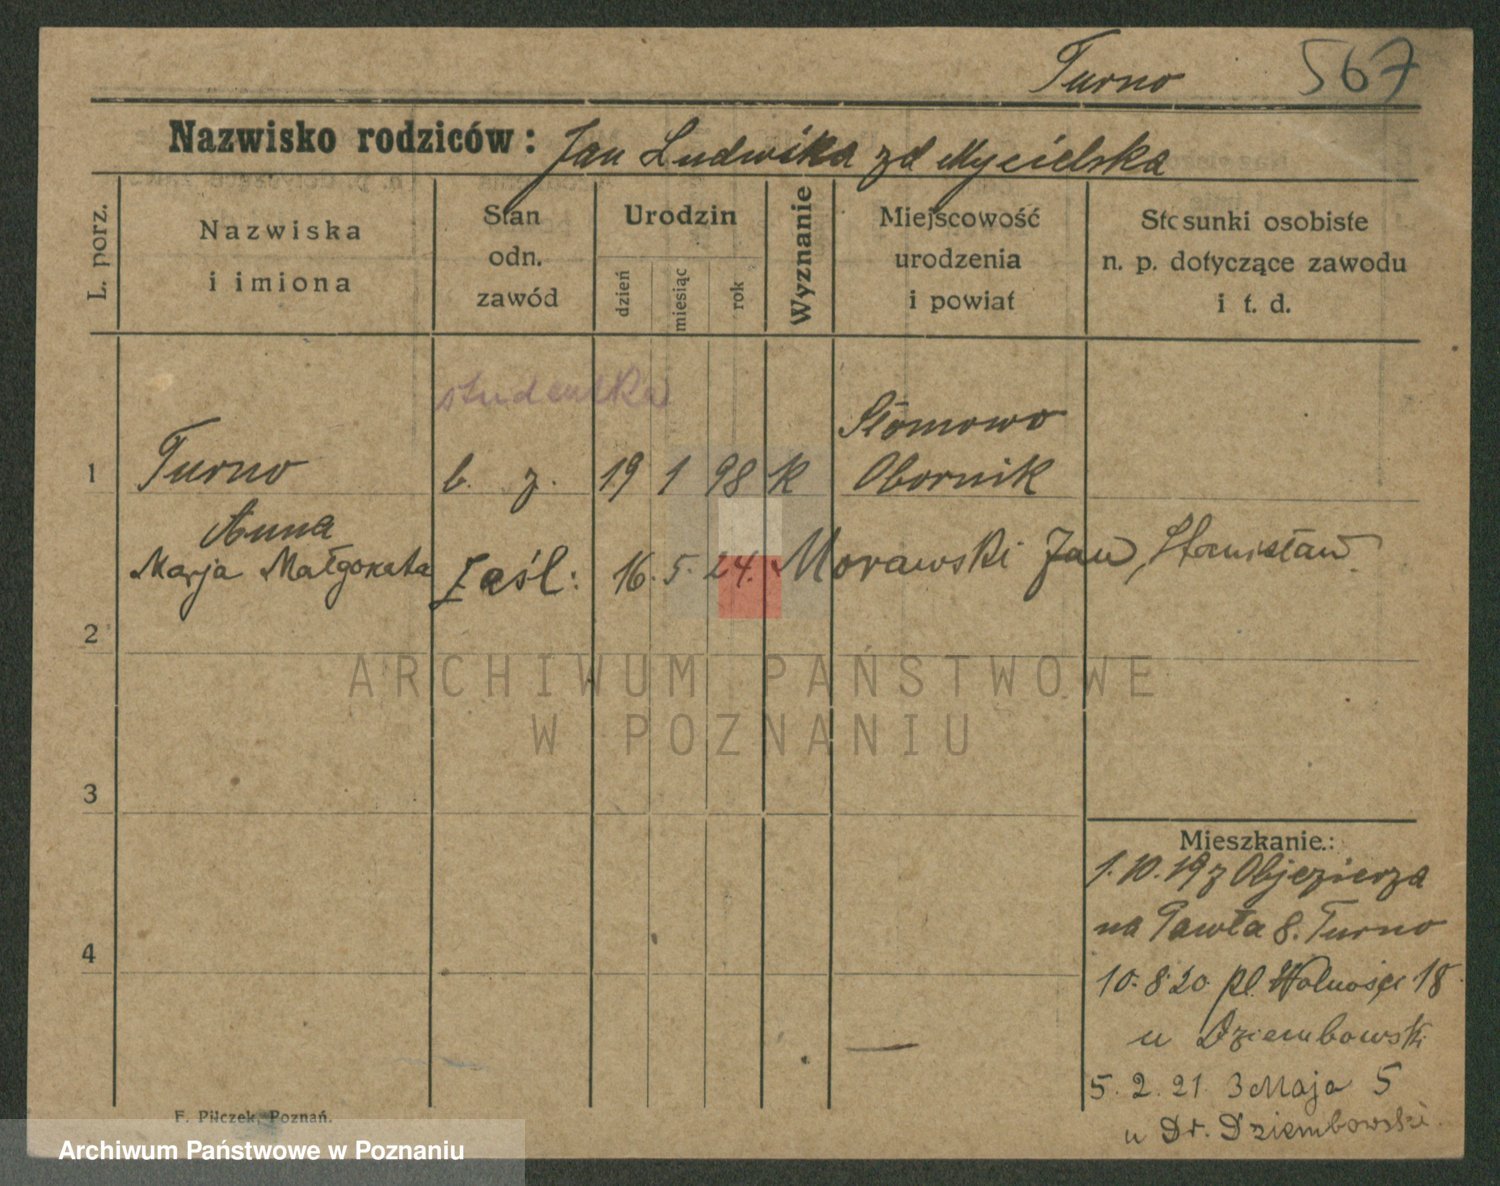 Turno 567
Nazwisko rodziców: Jan Ludwika zd Mycielska
L. porz.
Nazwiska
i imiona
Stan
odn.
zawód
Urodzin
dzień
miesiąc
rok
Wyznanie
Miejscowość
urodzenia
i powiat
Stosunki osobiste
n. p. dotyczące zawodu
i t. d.
studentka
Słomowo
1 Turno b. z. 19 1 98 k Obornik
Anna
Marja Małgorzata Zaśl: 16. 5. 24. Morawski Jan, Stanisław.
2
ARCHIWUM PAŃSTWOWE
W POZNANIU
3
Mieszkanie:
1.10.19 z Objezierza
na Pawła 8. Turno
4
10.8.20. pl. Wolności 18
u Dziembowski
5.2.21. 3 Maja 5
u Dr. Dziembowski.
F. Pilczek, Poznań.
Archiwum Państwowe w Poznaniu